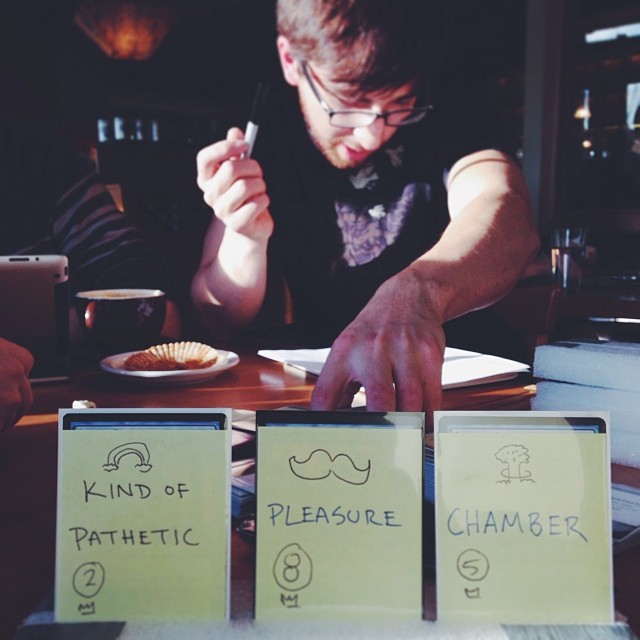 KIND OF
PATHETIC
2
PLEASURE
8
CHAMBER
5